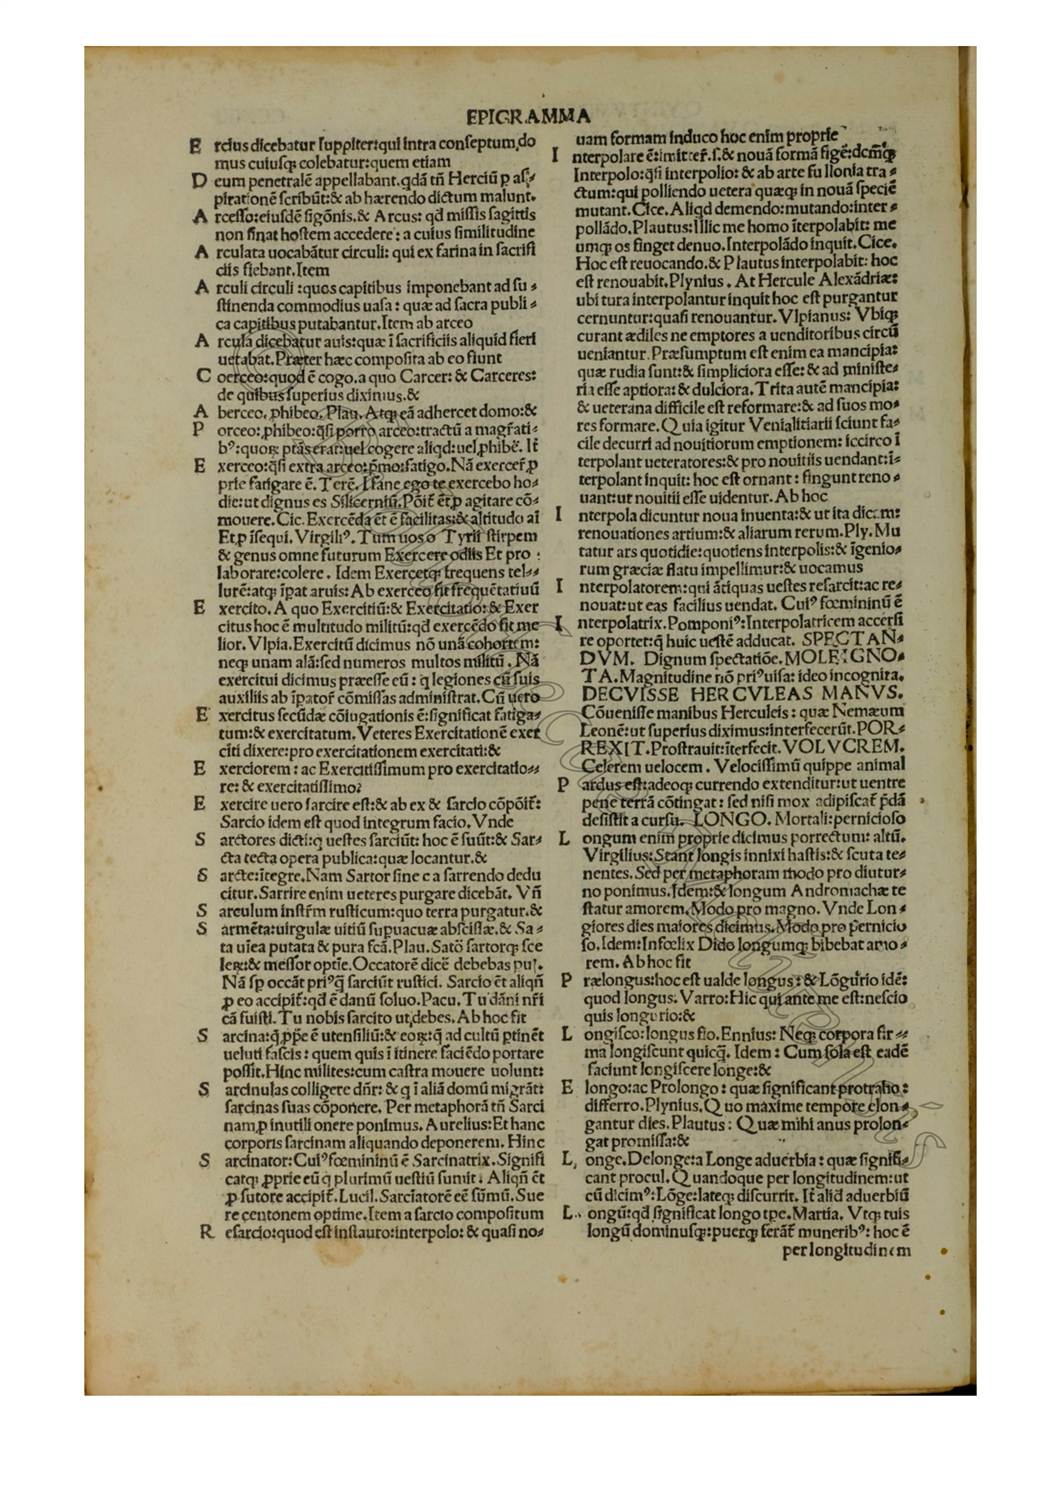 EPIGRAMMA
E rcius dicebatur Iuppiter:qui intra conseptum,do
mus cuiusqꝫ colebatur:quem etiam
D eum penetralē appellabant.qdā tñ Herciū ꝑ aſ/
pirationē scribūt:& ab hærendo dictum malunt.
A rcesso:eiusdē sigōnis.& Arcus: qđ missis sagittis
non sinat hostem accedere: a cuius similitudine
A rculata uocabātur circuli: qui ex farina in sacrifi
ciis fiebant.Item
A rculi circuli :quos capitibus imponebant ad su⸗
stinenda commodius uasa: quæ ad sacra publi⸗
ca capitibus putabantur.Item ab arceo
A rcula dicebatur auis:quæ ī sacrificiis aliquid fieri
uetabat.Præter hæc composita ab eo fiunt
C oerceo:quod ē cogo.a quo Carcer: & Carceres:
de quibus superius diximus.&
A berceo, ꝓhibeo. Plau. Atqꝫ eā adhercet domo:&
P orceo:ꝓhibeo:q̄si porro arceo:tractū a magr̄ati⸗
bꝰ:quoꝝ ptās erat:uel cogere aliqd:uel ꝓhibē. It̄
E xerceo:q̄si extra arceo:ꝑmo:fatigo.Nā exercet̄ ꝑ
prie fatigare ē. Terē. I sane ego te exercebo ho⸗
die:ut dignus es Silicerniū.Pōit̄ ēt ꝑ agitare cō⸗
mouere.Cic.Exercēda ēt ē facilitas:& altitudo aī
Et ꝑ īsequi.Virgiliꝰ. Tum uos o Tyrii stirpem
& genus omne futurum Exercere odiis Et pro :
laborare:colere. Idem Exercetqꝫ frequens tel⸗
lurē:atqꝫ īpat aruis: Ab exerceo fit frequētatiuū
E xercito. A quo Exercitiū:& Exercitatio:& Exer
citus hoc ē multitudo militū:qđ exercēdo fit me
lior. Vlpia.Exercitū dicimus nō unā cohortem:
neqꝫ unam alā:sed numeros multos militū. Nā
exercitui dicimus præesse eū: q̄ legiones cū suis
auxiliis ab īpator̄ cōmissas administrat.Cū uero
E xercitus secūdæ cōiugationis ē:significat fatiga⸗
tum:& exercitatum.Veteres Exercitationē exer
citi dixere:pro exercitationem exercitati:&
E xerciorem: ac Exercitissimum pro exercitatio⸗
re: & exercitatissimo?
E xercire uero sarcire est:& ab ex & sarcio cōpōit̄:
Sarcio idem est quod integrum facio. Vnde
S arctores dicti:q̄ uestes sarciūt: hoc ē suūt:& Sar⸗
cta tecta opera publica:quæ locantur.&
S arcte:ītegre.Nam Sartor sine c a sarrendo dedu
citur.Sarrire enim ueteres purgare dicebāt. Vñ
S arculum instr̄m rusticum:quo terra purgatur.&
S armēta:uirgulæ uitiū supuacuæ abscissæ.& Sa⸗
ta uīea putata & pura fcā.Plau. Satō sartorqꝫ sce
leꝝ:& messor optīe.Occatorē dicē debebas pu⸗.
Nā sꝑ occāt priꝰq̄ sarciūt rustici. Sarcio ēt aliqñ
ꝓ eo accipit̄:qđ ē danū soluo.Pacu. Tu dāni nr̄i
cā fuisti. Tu nobis sarcito ut,debes.Ab hoc fit
S arcina:q̄ ꝓpe ē utensiliū:& eoꝝ:q̄ ad cultū ptinēt
ueluti fascis : quem quis ī itinere faciēdo portare
possit.Hinc milites:cum castra mouere uolunt:
S arcinulas colligere dn̄r: & q̄ ī aliā domū migrāt:
sarcinas suas cōponere. Per metaphorā tñ Sarci
nam,ꝑ inutili onere ponimus.Aurelius:Et hanc
corporis sarcinam aliquando deponerem. Hinc
S arcinator:Cuiꝰfœmininū ē Sarcinatrix.Signifi
catqꝫ ꝓprie eū q̄ plurimū uestiū sumit. Aliqñ ēt
ꝓ sutore accipit̄.Lucil.Sarciatorē eē sūmū.Sue
re centonem optime.Item a sarcio compositum
R esarcio:quod est instauro:interpolo: & quasi no⸗
uam formam induco hoc enim proprie
I nterpolare ē:imitter̄.s.& nouā formā figē:dēmqꝫ
Interpolo:q̄si interpolio: & ab arte fullonia tra⸗
ctum:qui polliendo uetera quæqꝫ in nouā speciē
mutant.Cice.Aliqđ demendo:mutando:inter⸗
pollādo.Plautus:Illic me homo īterpolabit: me
umqꝫ os finget denuo.Interpolādo inquit.Cice.
Hoc est reuocando.& Plautus interpolabit: hoc
est renouabit.Plynius. At Hercule Alexādriæ:
ubi tura interpolantur inquit hoc est purgantur
cernuntur:quasi renouantur. Vlpianus: Vbiqꝫ
curant ædiles ne emptores a uenditoribus circū
ueniantur. Præsumptum est enim ea mancipia:
quæ rudia sunt:& simpliciora esse: & ad ministe⸗
ria esse aptiora:& dulciora.Trita autē mancipia:
& ueterana difficile est reformare:& ad suos mo⸗
res formare. Quia igitur Venialitiarii sciunt fa⸗
cile decurri ad nouitiorum emptionem: iccirco ī
terpolant ueteratores:& pro nouitiis uendant:ī⸗
terpolant inquit: hoc est ornant : fingunt reno⸗
uant:ut nouitii esse uidentur. Ab hoc
I nterpola dicuntur noua inuenta:& ut ita dicam:
renouationes artium:& aliarum rerum. Ply. Mu
tatur ars quotidie:quotiens interpolis:& īgenio⸗
rum græciæ flatu impellimur:& uocamus
I nterpolatorem:qui ātiquas uestes resarcit:ac re⸗
nouat:ut eas facilius uendat. Cuiꝰ fœmininū ē
I nterpolatrix.Pomponiꝰ:Interpolatricem accersi
re oportet:q̄ huic uestē adducat. SPECTAN⸗
DVM. Dignum spectatiōe.MOLE IGNO⸗
TA.Magnitudine nō priꝰuisa: ideo incognita.
DECVISSE HERCVLEAS MANVS.
Cōuenisse manibus Herculeis : quæ Nemæum
Leonē:ut superius diximus:interfecerūt.POR⸗
REXIT.Prostrauit:īterfecit.VOLVCREM.
Celerem uelocem. Velocissimū quippe animal
P ardus est:adeoqꝫ currendo extenditur:ut uentre
pene terrā cōtingat: sed nisi mox adipiscat̄ p̄dā
desistit a cursu. LONGO. Mortali:pernicioso
L ongum enim proprie dicimus porrectum: altū.
Virgilius:Stant longis innixi hastis:& scuta te⸗
nentes. Sed per metaphoram modo pro diutur⸗
no ponimus.Idem:& longum Andromachæ te
statur amorem. Modo pro magno. Vnde Lon⸗
giores dies maiores dicimus.Modo pro p̄nicio
so.Idem:Infœlix Dido longumqꝫ bibebat amo⸗
rem. Ab hoc fit
P rælongus:hoc est ualde longus: & Lōgurio idē:
quod longus. Varro:Hic qui ante me est:nescio
quis longurio:&
L ongisco:longus fio.Ennius: Neqꝫ corpora fir⸗
ma longiscunt quicqꝫ. Idem : Cum sola est eadē
faciunt longiscere longe:&
E longo:ac Prolongo : quæ significant protraho:
differro.Plynius.Quo maxime tempore elon⸗
gantur dies.Plautus : Quæ mihi anus prolon⸗
gat promissa:&
L onge.Delonge:a Longe aduerbia : quæ signifi⸗
cant procul. Quandoque per longitudinem:ut
cū dicimꝰ:Lōge:lateqꝫ discurrit. It̄ aliđ aduerbiū
L ongū:qđ significat longo tꝑe.Martia. Vtqꝫ tuis
longū dominusqꝫ:puerqꝫ ferāt̄ muneribꝰ: hoc ē
per longitudinem